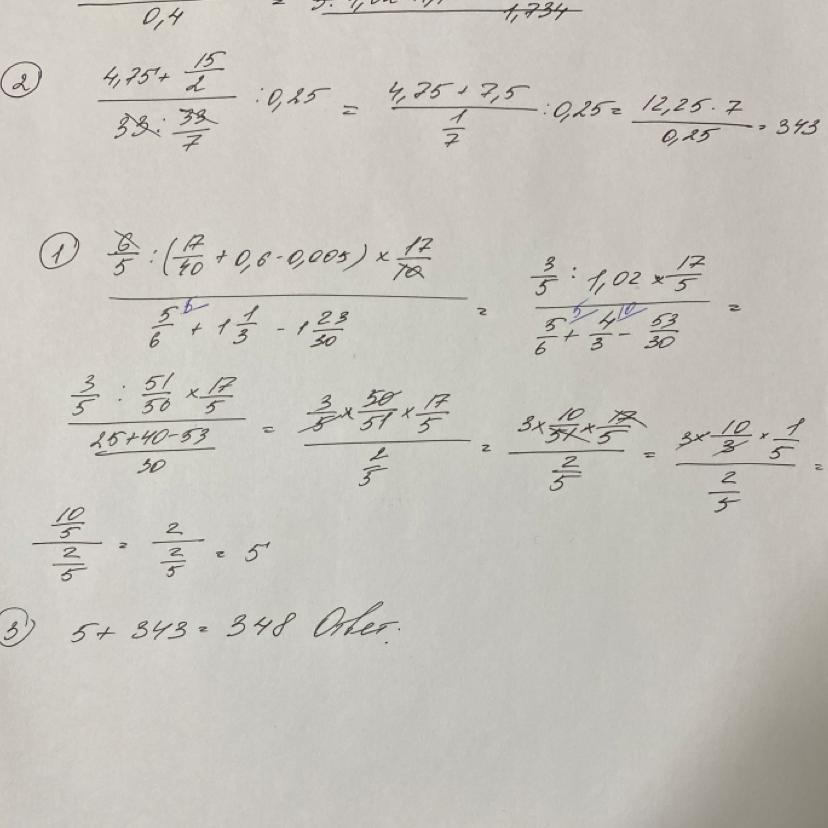 0,4 = 1,734
② (4,75 + 15/2)/(33 : 33/7) : 0,25 = (4,75 + 7,5)/(1/7) : 0,25 = (12,25 · 7)/0,25 = 343
① (6/5 : (17/40 + 0,6 - 0,005) × 17/10)/(5/6 + 1 1/3 - 1 23/30) = (3/5 : 1,02 × 17/5)/(5/6 + 4/3 - 53/30) =
(3/5 : 51/50 × 17/5)/((25+40-53)/30) = (3/5 × 50/51 × 17/5)/(2/5) = (3 × 10/51 × 17/5)/(2/5) = (3 × 10/3 × 1/5)/(2/5) =
(10/5)/(2/5) = 2/(2/5) = 5
③ 5 + 343 = 348 Ответ.